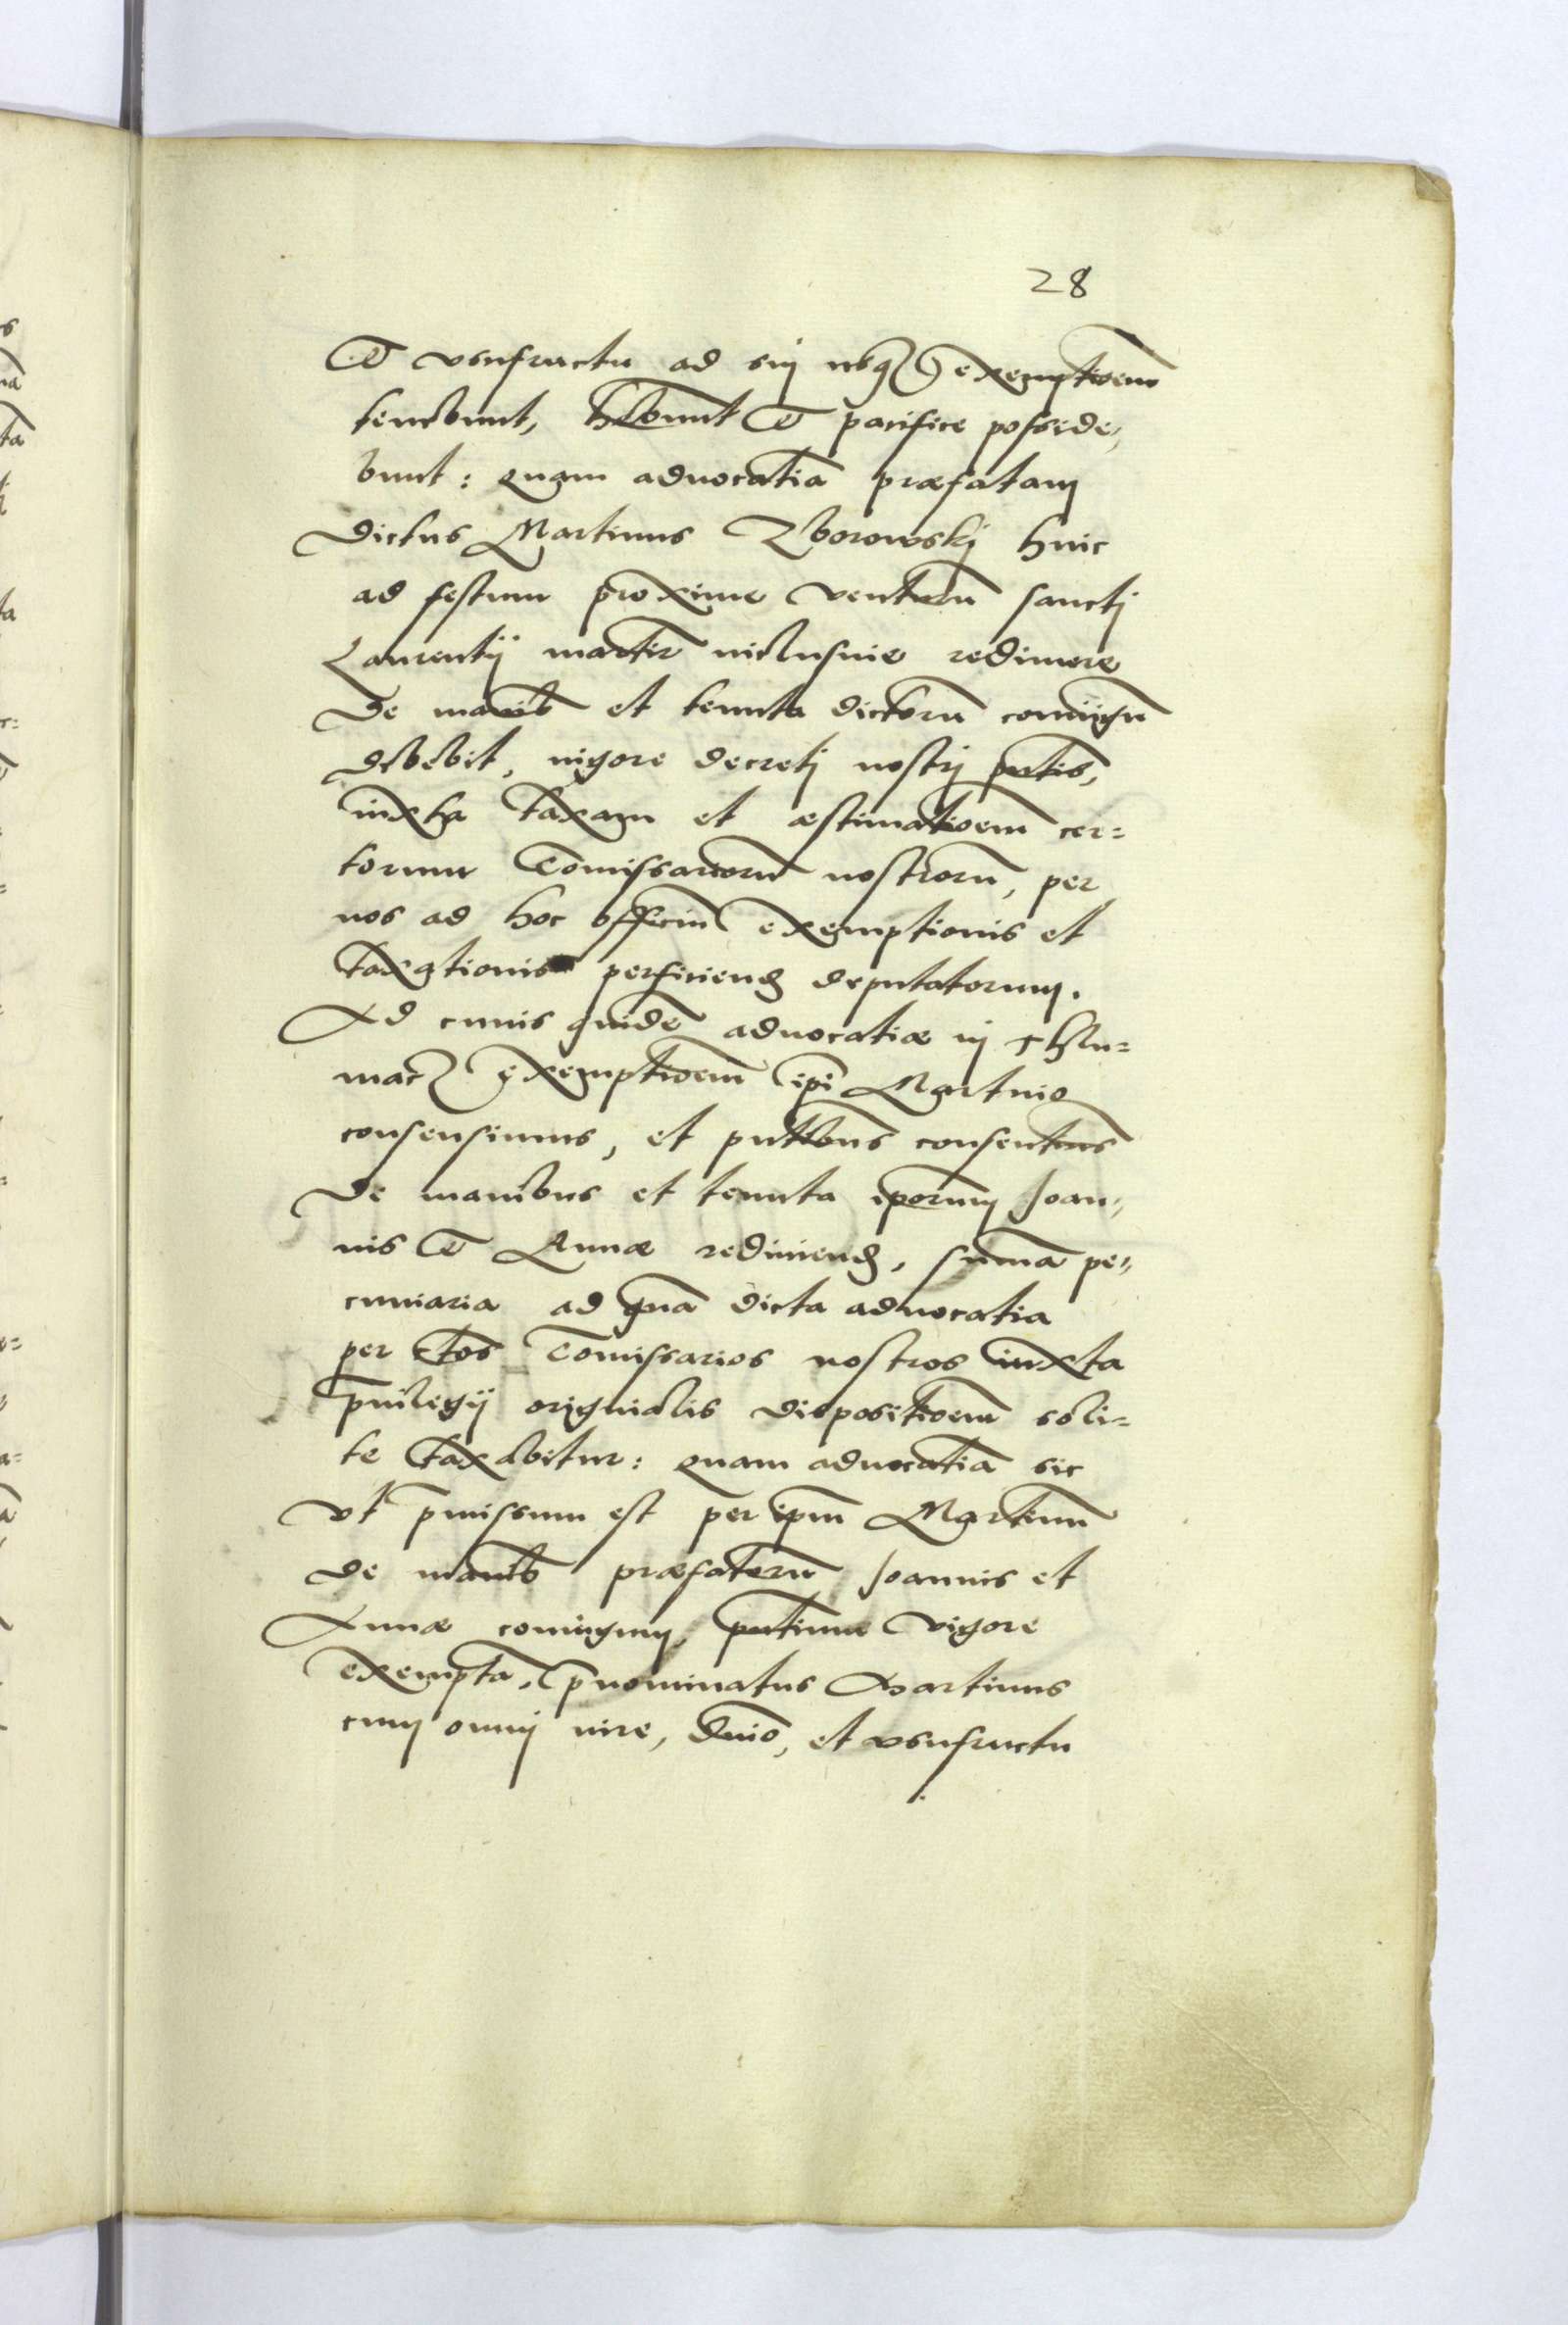 28
Et vsufructu ad sui usq(ue) exemptioem
tenebunt, hebunt Et pacifice posside„
bunt : quam aduocatiā præfatam
dictus Martinus Zborowskj huic
ad festum proxime venturū sanctj
Laurentij martir inclusiue redimere
de manib et tenuta dictorū coniugū
debebit, uigore decretj nostrj pntis,
iuxta taxam et æstimatioem cer=
torum Comissariorū nostrorū, per
nos ad hoc officiū exemptionis et
taxationis perficiend deputatorum.
Ad cuius quidē aduocatiæ in Thlu=
macz exemptioem ipi Martino
consensimus, et pntibus consentimus
de manibus et tenuta iporum Joan„
nis Et Annæ rediniend, summa pe„
cuniaria ad quā dicta aduocatia
per ctos Comissarios nostros iuxta
priuilegij originalis dispositioem soli=
te taxabitur : quam aduocatiā sic
vt pmissum est per ipm Martinū
de manib præfatorū Joannis et
Annæ coniugum, pntium vigore
exemptā, pnominatus Martinus
cum omnj iure, dnio, et vsufructu